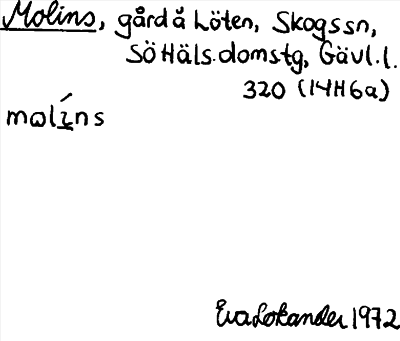 Molins, gård å Löten, Skogssn,
SöHäls.domstg, Gävl.l.
320 (14H6a)
mɷlíns
Eva Lokander 1972